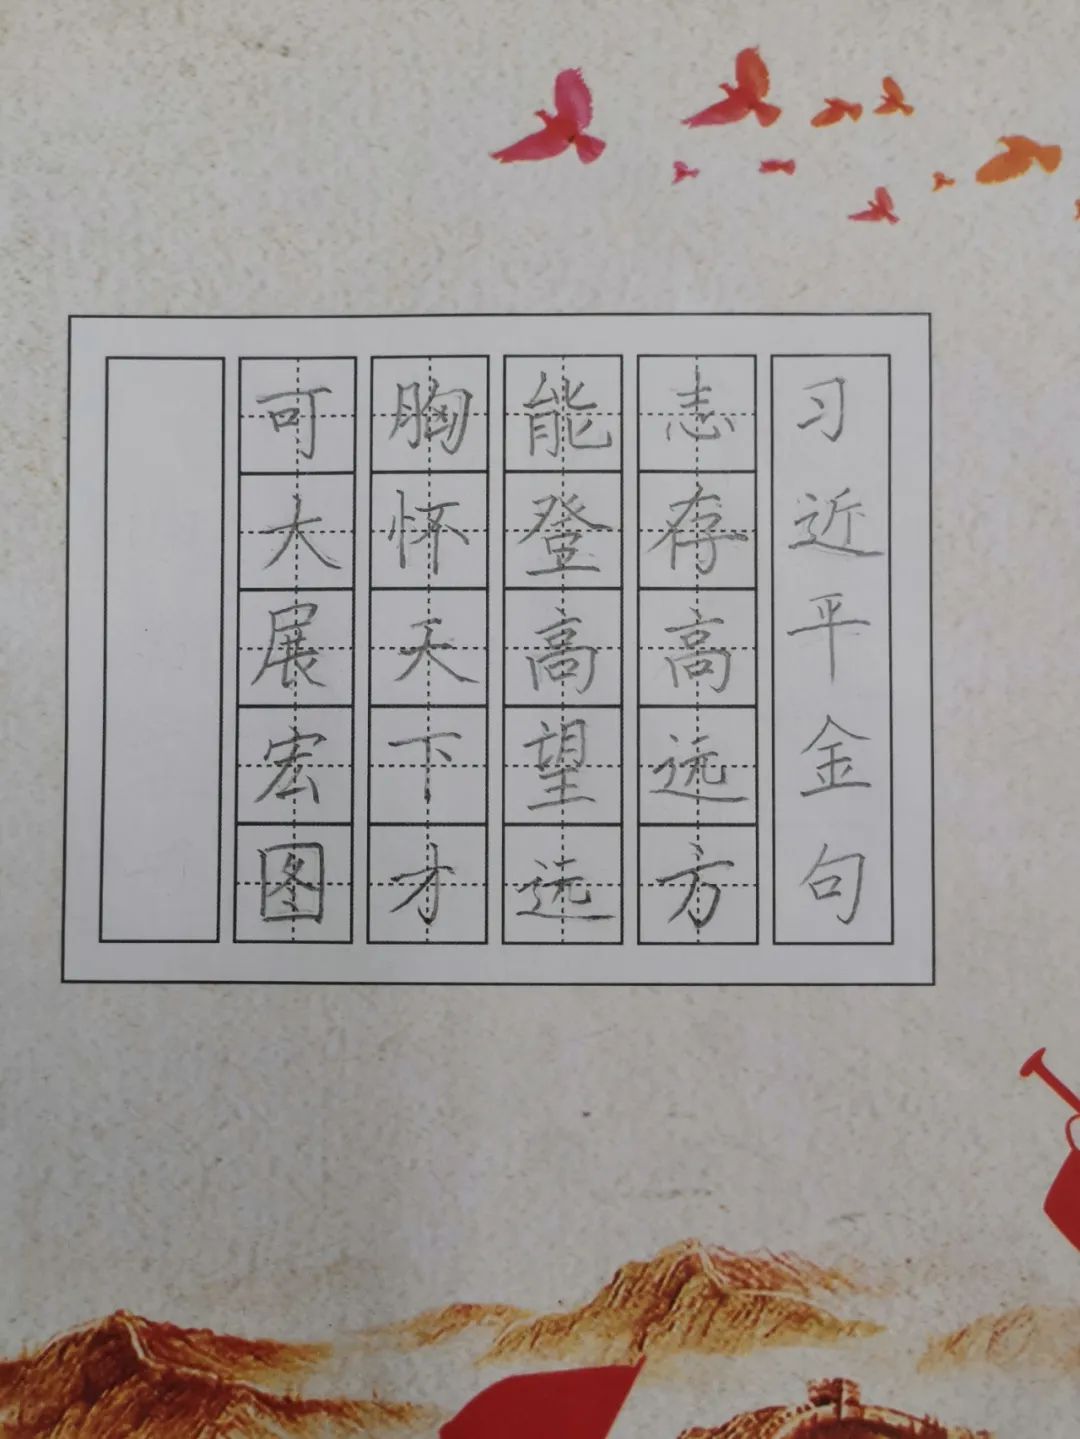 习近平金句
志存高远方
能登高望远
胸怀天下才
可大展宏图